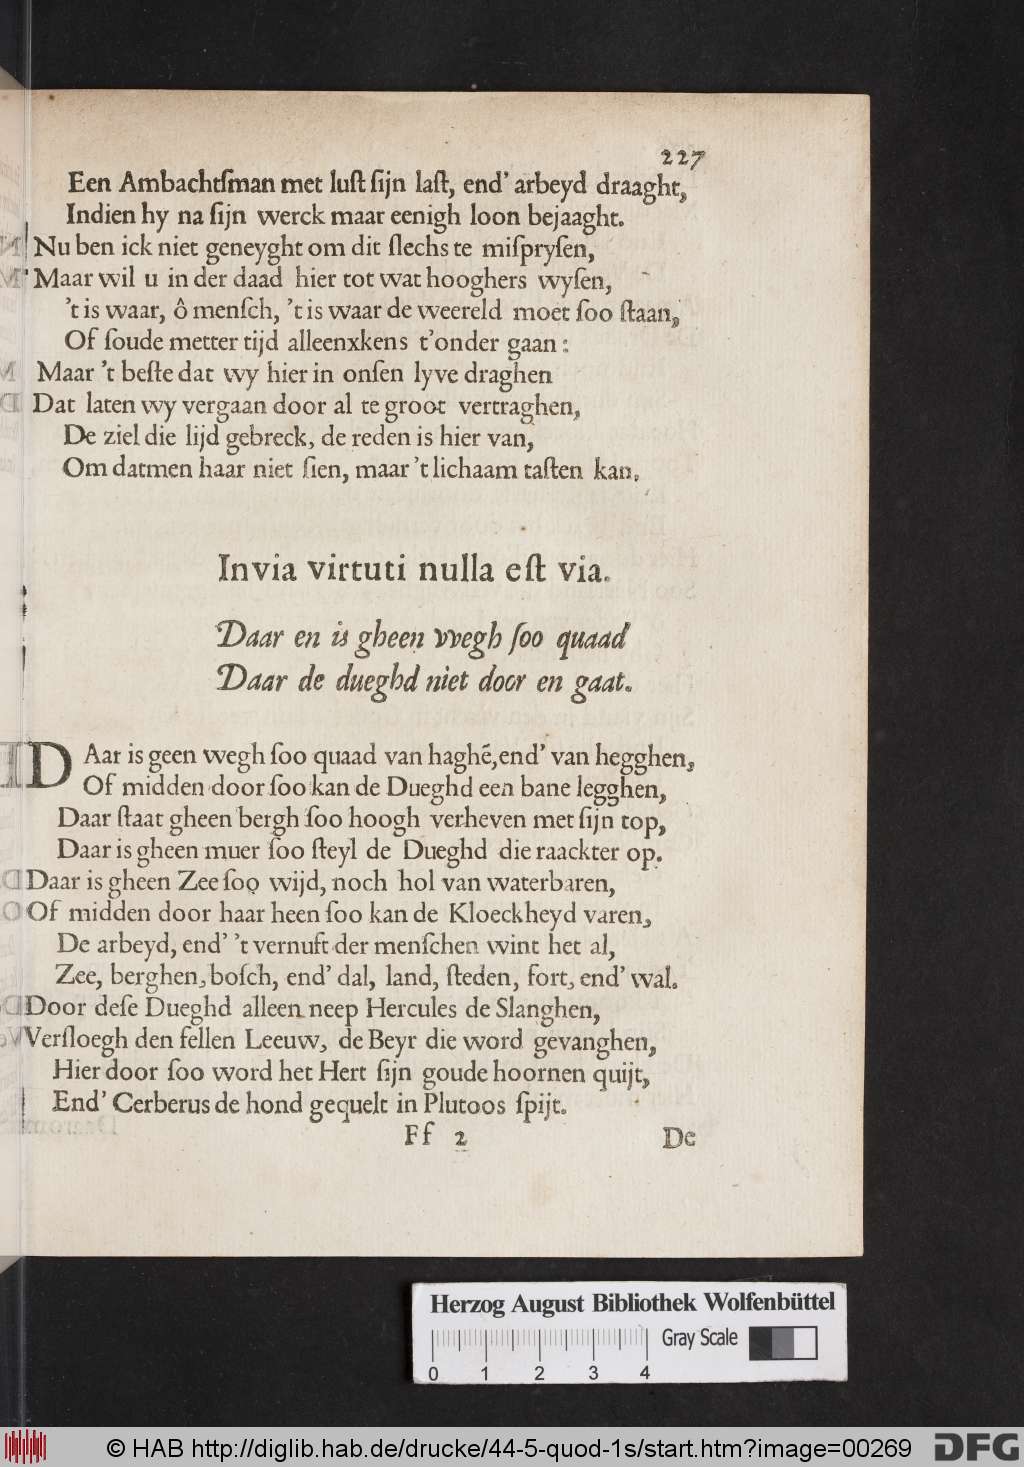 227
Een Ambachtſman met luſt ſijn laſt, end' arbeyd draaght,
Indien hy na ſijn werck maar eenigh loon bejaaght.
Nu ben ick niet geneyght om dit ſlechs te miſpryſen,
Maar wil u in der daad hier tot wat hooghers wyſen,
't is waar, ô menſch, 't is waar de weereld moet ſoo ſtaan,
Of ſoude metter tijd alleenxkens t'onder gaan:
Maar 't beſte dat wy hier in onſen lyve draghen
Dat laten wy vergaan door al te groot vertraghen,
De ziel die lijd gebreck, de reden is hier van,
Om datmen haar niet ſien, maar 't lichaam taſten kan.
Invia virtuti nulla eſt via.
Daar en is gheen wegh ſoo quaad
Daar de dueghd niet door en gaat.
DAar is geen wegh ſoo quaad van haghē, end' van hegghen,
Of midden door ſoo kan de Dueghd een bane legghen,
Daar ſtaat gheen bergh ſoo hoogh verheven met ſijn top,
Daar is gheen muer ſoo ſteyl de Dueghd die raackter op.
Daar is gheen Zee ſoo wijd, noch hol van waterbaren,
Of midden door haar heen ſoo kan de Kloeckheyd varen,
De arbeyd, end' 't vernuft der menſchen wint het al,
Zee, berghen, boſch, end' dal, land, ſteden, fort, end' wal.
Door deſe Dueghd alleen neep Hercules de Slanghen,
Verſloegh den fellen Leeuw, de Beyr die word gevanghen,
Hier door ſoo word het Hert ſijn goude hoornen quijt,
End' Cerberus de hond gequelt in Plutoos ſpijt.
Ff 2 De
Herzog August Bibliothek Wolfenbüttel
Gray Scale
0 1 2 3 4
© HAB http://diglib.hab.de/drucke/44-5-quod-1s/start.htm?image=00269 DFG